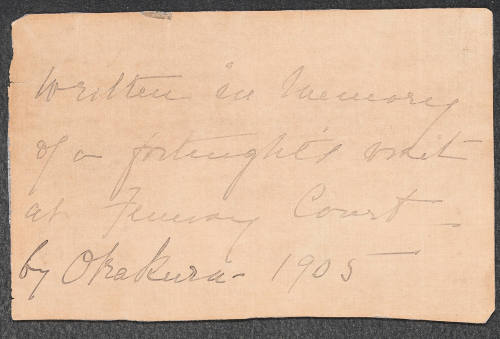 Written in memory
of a fortnight's visit
at Fenway Court —
by Okakura - 1905